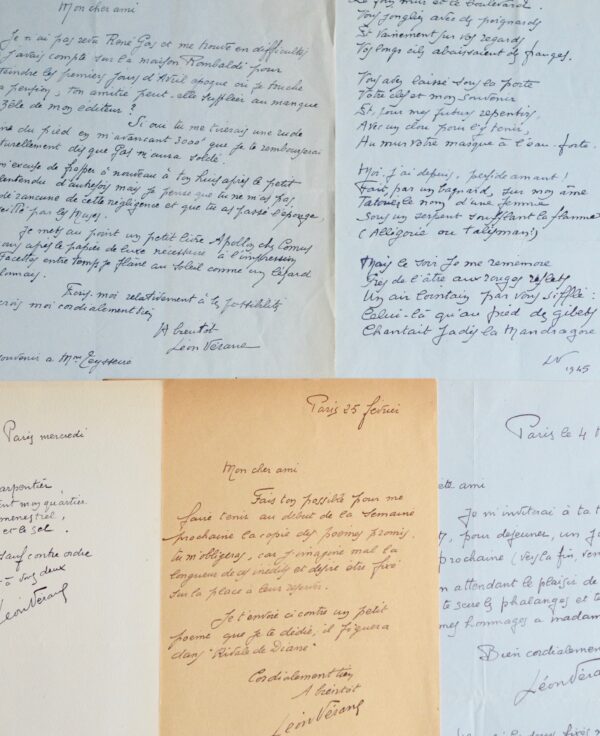 Mon cher ami
Je n'ai pas revu René Gas et me trouve en difficultés
J'avais compté sur la maison Rombaldi pour
teindre les premiers jours d'Avril époque où je touche
a pension, ton amitié peut-elle suppléer au manque
zèle de mon éditeur ?
Si oui tu me tirerais une rude
ne du pied en m'avançant 3000 que je te rembourserai
turellement dès que Gas m'aura soldé.
m'excuse de frapper à nouveau à ton huis après le petit
lentendu d'autrefois mais je pense que tu ne m'as pas
dé rancune de cette négligence et que tu as passé l'éponge,
par les Muses.
Je mets au point un petit livre Apollon chez Comus
aus après le papier de luxe nécessaire à l'impression
Facettes entre temps je flâne au soleil comme un lézard
Fixes-moi relativement à la possibilité
crois moi cordialement tien
A bientôt
Léon Vérane
ouvenir à Mme Teyssère
Le fou, murs et le boulevard.
Vous jongliez avec des poignards
Et vainement sur vos regards
Vos longs cils abaissaient des franges.
Vous avez laissé sous la porte
Votre clef et mon souvenir
Et, pour mes futurs repentirs,
Avec un clou pour l'y tenir,
Au mur votre masque à l'eau-forte.
Moi, j'ai depuis, perfide amant !
Fait, par un bagnard, sur mon âme
Tatouer le nom d'une femme
Sous un serpent soufflant la flamme
(Allégorie ou talisman !)
Mais le soir je me remémore
Près de l'âtre aux rouges reflets
Un air lointain par vous sifflé :
Celui-là qu'au pied des gibets
Chantait jadis la Mandragore
LV
1945
Paris mercredi
arpentier
ent mon quartier
menestrel,
et le sel.
sauf contre ordre
à vous deux
Léon Vérane
Paris 25 fevrier
Mon cher ami
Fais ton possible pour me
faire tenir au début de la semaine
prochaine la copie des poèmes promis.
tu m'obligeras, car j'imagine mal la
longueur de ces inédits et désire être fixé
sur la place à leur réserver.
Je t'envoie ci contre un petit
poème que je te dédie, il figurera
dans "Rivale de Diane"
Cordialement tien
A bientôt
Léon Vérane
Paris le 4
ami
Je m'inviterai à ta t
pour déjeuner, un j
prochaine (vers la fin ven
n attendant le plaisir de
te serre les phalanges et te
mes hommages a madam
Bien cordialemen
Léon Véra